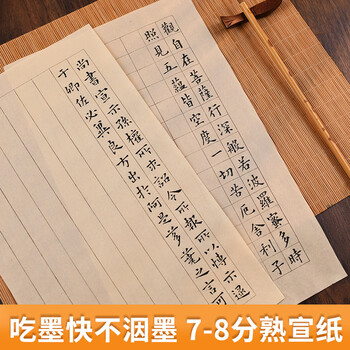 觀自在菩薩行深般若波羅蜜多時
照見五蘊皆空度一切苦厄舍利子
尚書宣示孫權所求詔令所報所以博示逮
于卿佐必冀良方出於阿是芻蕘之言可
吃墨快不洇墨 7-8分熟宣纸